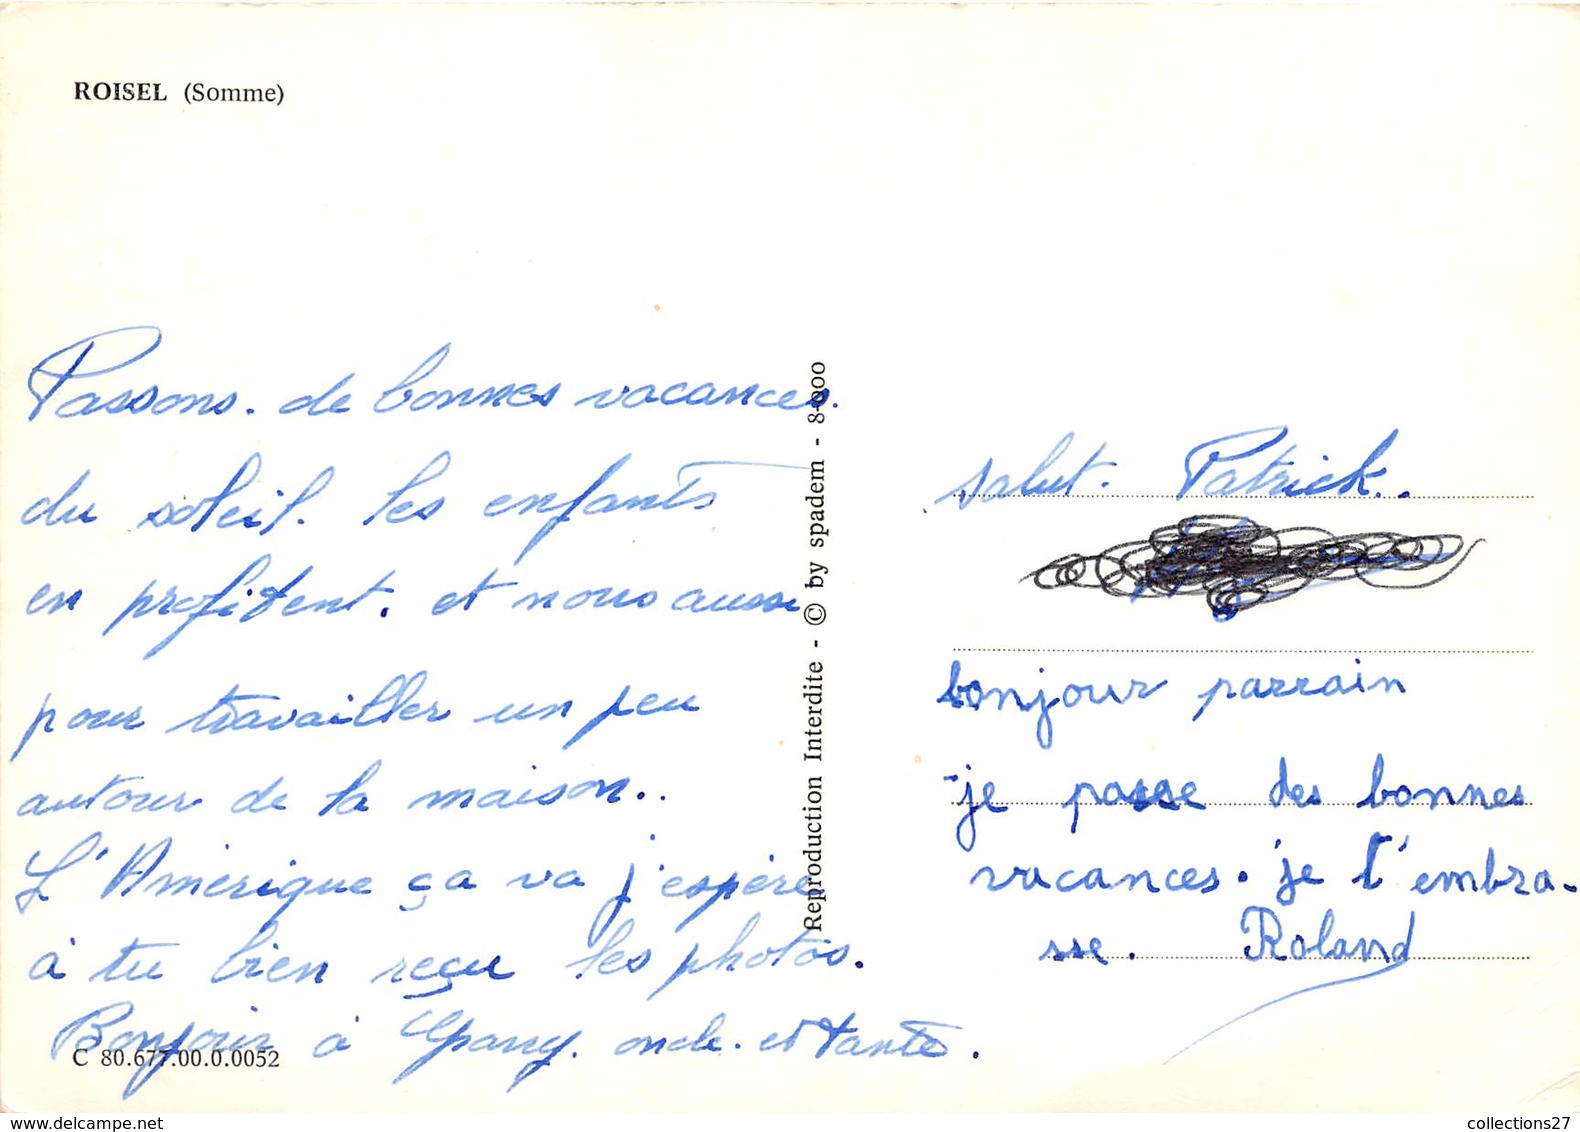 ROISEL (Somme)
Passons. de bonnes vacances.
du soleil. les enfants
en profitent. et nous aussi
pour travailler un peu
autour de la maison..
L'Amérique ça va j'espère
à tu bien reçu les photos.
Bonjour à Gparry. oncle. et tante.
C 80.677.00.0.0052
Reproduction Interdite - © by spadem - 8-800
salut. Patrick..
bonjour parrain
-je passe des bonnes
vacances. je t'embra-
sse. Roland
collections27